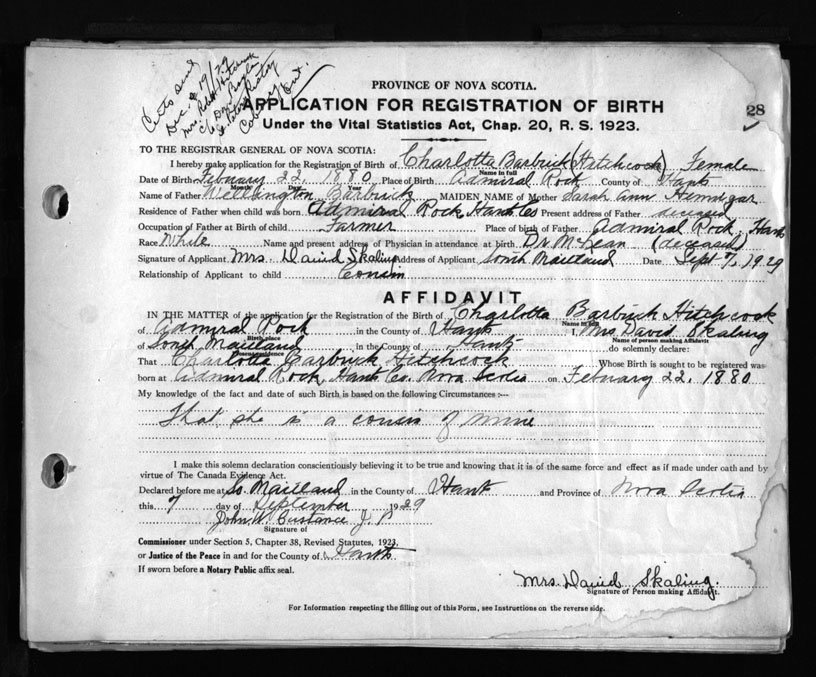 Dec 19/29
Mrs Robt Hitchcock
28
PROVINCE OF NOVA SCOTIA.
APPLICATION FOR REGISTRATION OF BIRTH
Under the Vital Statistics Act, Chap. 20, R. S. 1923.
TO THE REGISTRAR GENERAL OF NOVA SCOTIA:
I hereby make application for the Registration of Birth of Charlotta Barbrick (Hitchcock) Female
Name in full
Date of Birth February 22, 1880 Place of Birth Admiral Rock County of Hants
Month Day Year
Name of Father Wellington Barbrick MAIDEN NAME of Mother Sarah Ann
Residence of Father when child was born Admiral Rock, Hants Co Present address of Father deceased
Occupation of Father at Birth of child Farmer Place of birth of Father Admiral Rock, Hants
Race White Name and present address of Physician in attendance at birth Dr McLean (deceased)
Signature of Applicant Mrs. David Skaling Address of Applicant South Maitland Date Sept 7, 1929
Relationship of Applicant to child Cousin
AFFIDAVIT
IN THE MATTER of the application for the Registration of the Birth of Charlotta Barbrick Hitchcock
Name in full
of Admiral Rock in the County of Hants I, Mrs David Skaling
Birth place Name of person making Affidavit
of South Maitland in the County of Hants do solemnly declare:
Present residence
That Charlotta Barbrick Hitchcock Whose Birth is sought to be registered was
born at Admiral Rock, Hants Co. Nova Scotia on February 22, 1880
My knowledge of the fact and date of such Birth is based on the following Circumstances :—
That she is a cousin of mine
I make this solemn declaration conscientiously believing it to be true and knowing that it is of the same force and effect as if made under oath and by
virtue of The Canada Evidence Act.
Declared before me at So. Maitland in the County of Hants and Province of Nova Scotia
this 7 day of September 1929
John W. Custance J. P.
Signature of
Commissioner under Section 5, Chapter 38, Revised Statutes, 1923.
or Justice of the Peace in and for the County of Hants
If sworn before a Notary Public affix seal.
Mrs. David Skaling.
Signature of Person making Affidavit.
For Information respecting the filling out of this Form, see Instructions on the reverse side.